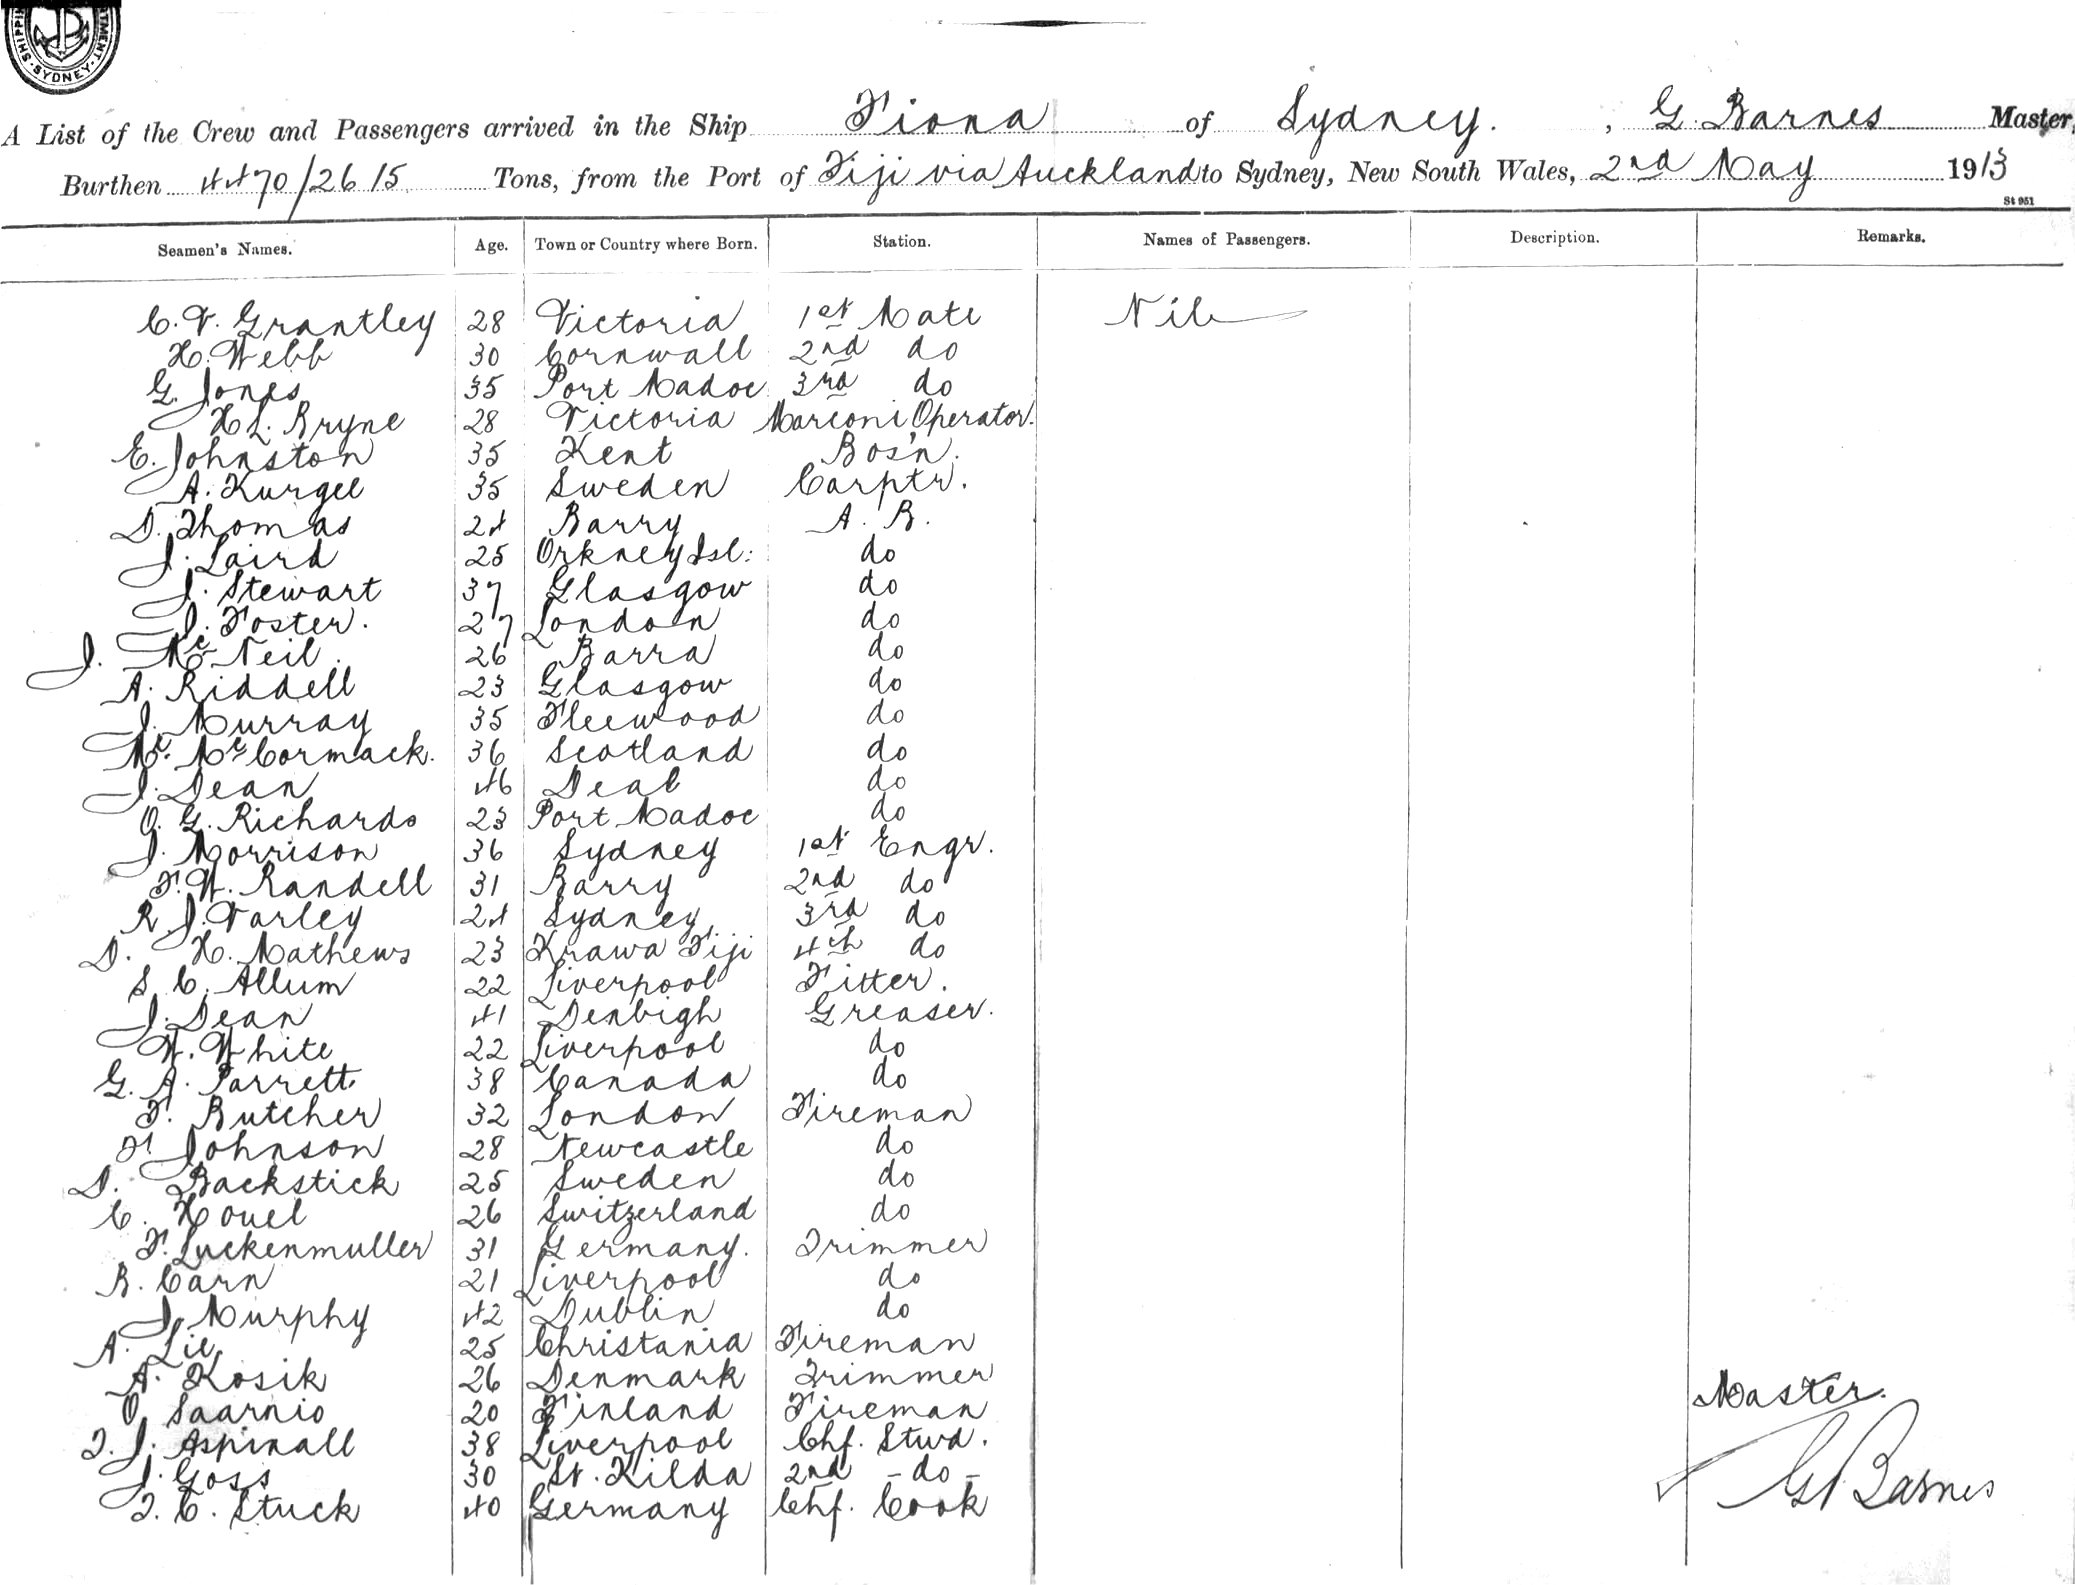 SHIPPIN
TMENT
SYDNEY
A List of the Crew and Passengers arrived in the Ship Fiona of Sydney. , G. Barnes Master,
Burthen 4470/2615 Tons, from the Port of Fiji via Auckland to Sydney, New South Wales, 2nd May 1913
St 951
Seamen's Names. Age. Town or Country where Born. Station. Names of Passengers. Description. Remarks.
C. V. Grantley 28 Victoria 1st Mate Nil
H. Webb 30 Cornwall 2nd do
G. Jones 35 Port Madoc 3rd do
H L. Bryne 28 Victoria Marconi Operator.
E. Johnston 35 Kent Bos'n.
A. Kurgel 35 Sweden Carptr.
D. Thomas 24 Barry A. B.
J. Laird 25 Orkney Isl: do
J. Stewart 37 Glasgow do
J. Foster. 27 London do
J. Mc Neil. 26 Barra do
A. Riddell 23 Glasgow do
J. Murray 35 Fleewood do
M. Mc Cormack. 36 Scotland do
J. Dean 46 Deal do
O. G. Richards 23 Port Madoc do
J. Morrison 36 Sydney 1st Engr.
F. W. Randell 31 Barry 2nd do
R. J. Varley 24 Sydney 3rd do
D. H. Mathews 23 Krawa Fiji 4th do
S. C. Allum 22 Liverpool Fitter.
J. Dean 41 Denbigh Greaser.
W. White 22 Liverpool do
G. A. Parrett 38 Canada do
F. Butcher 32 London Fireman
F. Johnson 28 Newcastle do
D. Backstick 25 Sweden do
C. Houel 26 Switzerland do
F. Luckenmuller 31 Germany. Trimmer
R. Carn 21 Liverpool do
J. Murphy 42 Dublin do
A. Lie 25 Christania Fireman
A. Kosik 26 Denmark Trimmer
O. Saarnio 20 Finland Fireman
T. J. Aspinall 38 Liverpool Chf. Stwd.
J. Goss 30 St. Kilda 2nd - do -
T. C. Stuck 40 Germany Chf. Cook
Master.
G Barnes